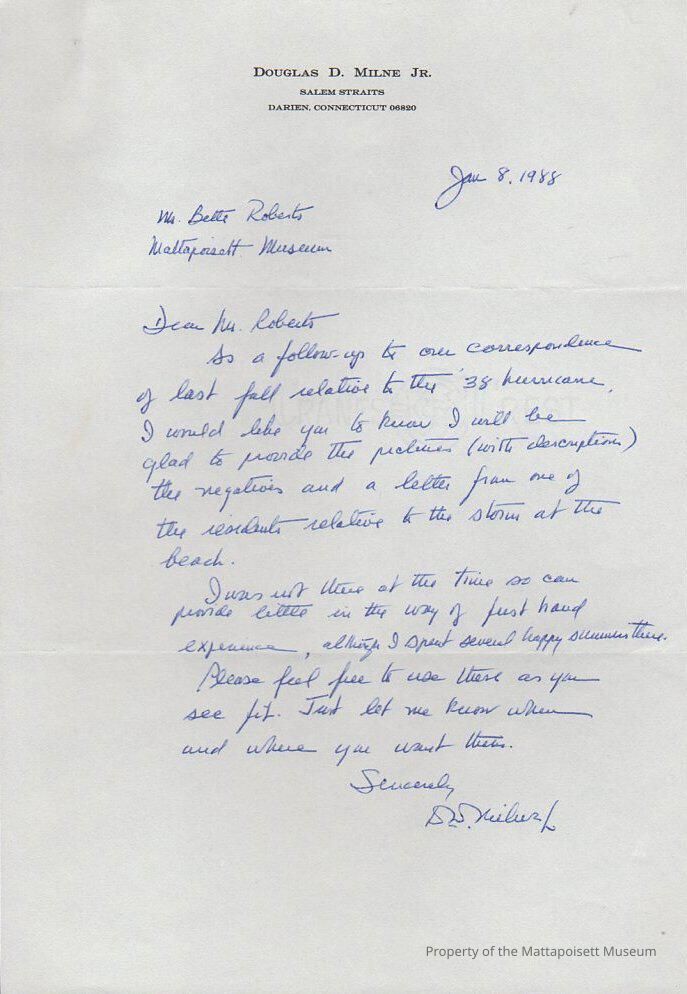 DOUGLAS D. MILNE JR.
SALEM STRAITS
DARIEN, CONNECTICUT 06820
Jan 8, 1988
Ms. Bette Roberts
Mattapoisett Museum
Dear Ms. Roberts
As a follow-up to our correspondence
of last fall relative to the '38 hurricane,
I would like you to know I will be
glad to provide the pictures (with descriptions)
the negatives and a letter from one of
the residents relative to the storm at the
beach.
I was not there at the time so can
provide little in the way of first hand
experience, although I spent several happy summers there.
Please feel free to use these as you
see fit. Just let me know when
and where you want them.
Sincerely
D.D. Milne Jr.
Property of the Mattapoisett Museum